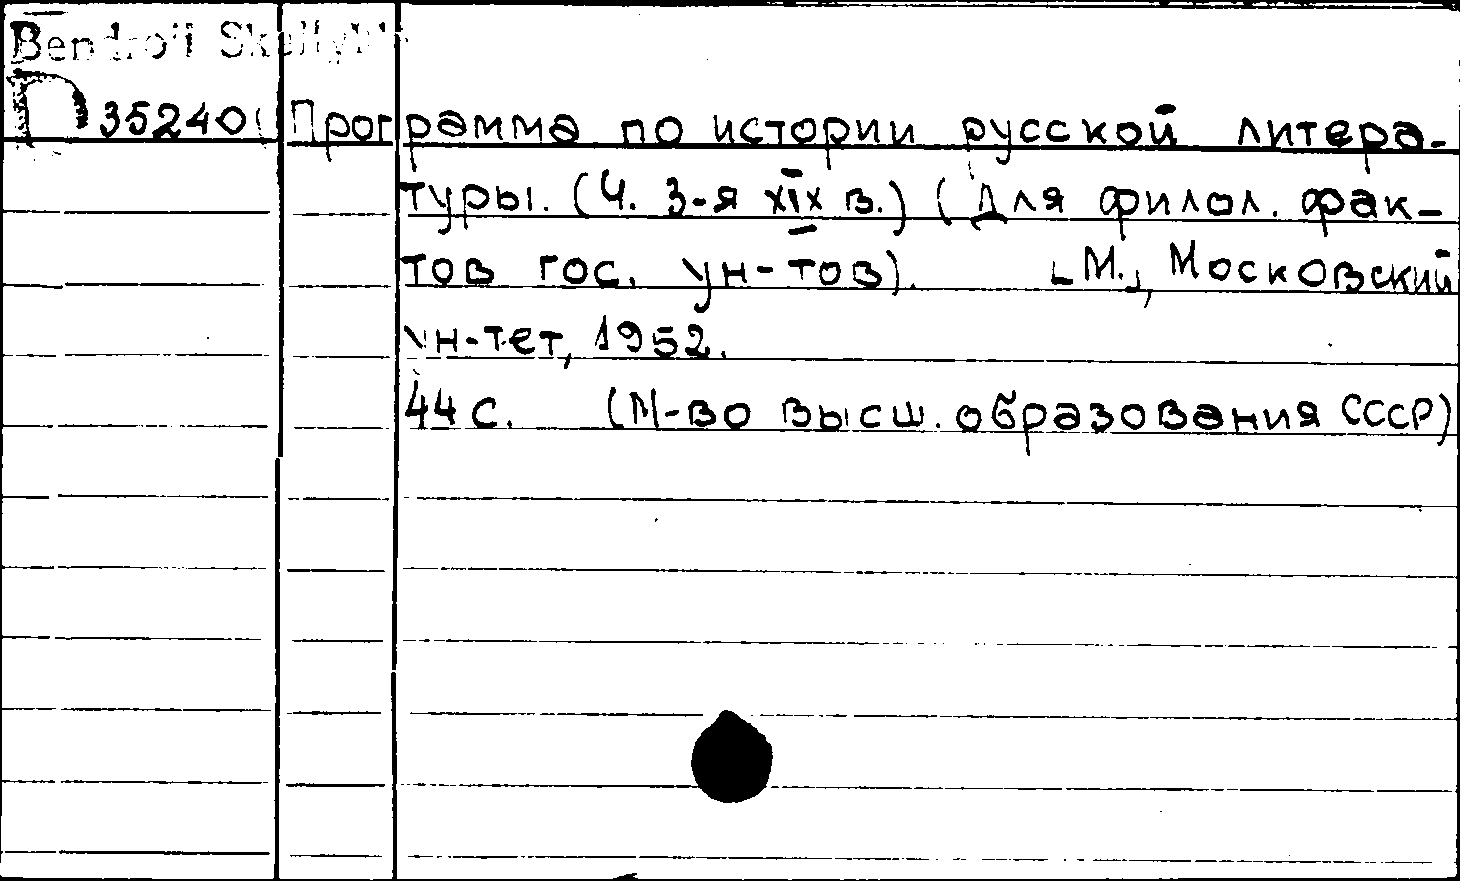 Bendroji Skaitykla
П 35240 Программа по истории русской литера-
туры. (Ч. 3-я XIX в.) (Для филол. фак-
тов гос. ун-тов). [М.], Московский
ун-тет, 1952.
44 с. (М-во высш. образования СССР)